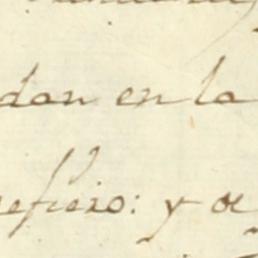 dan en la
eficio: y de